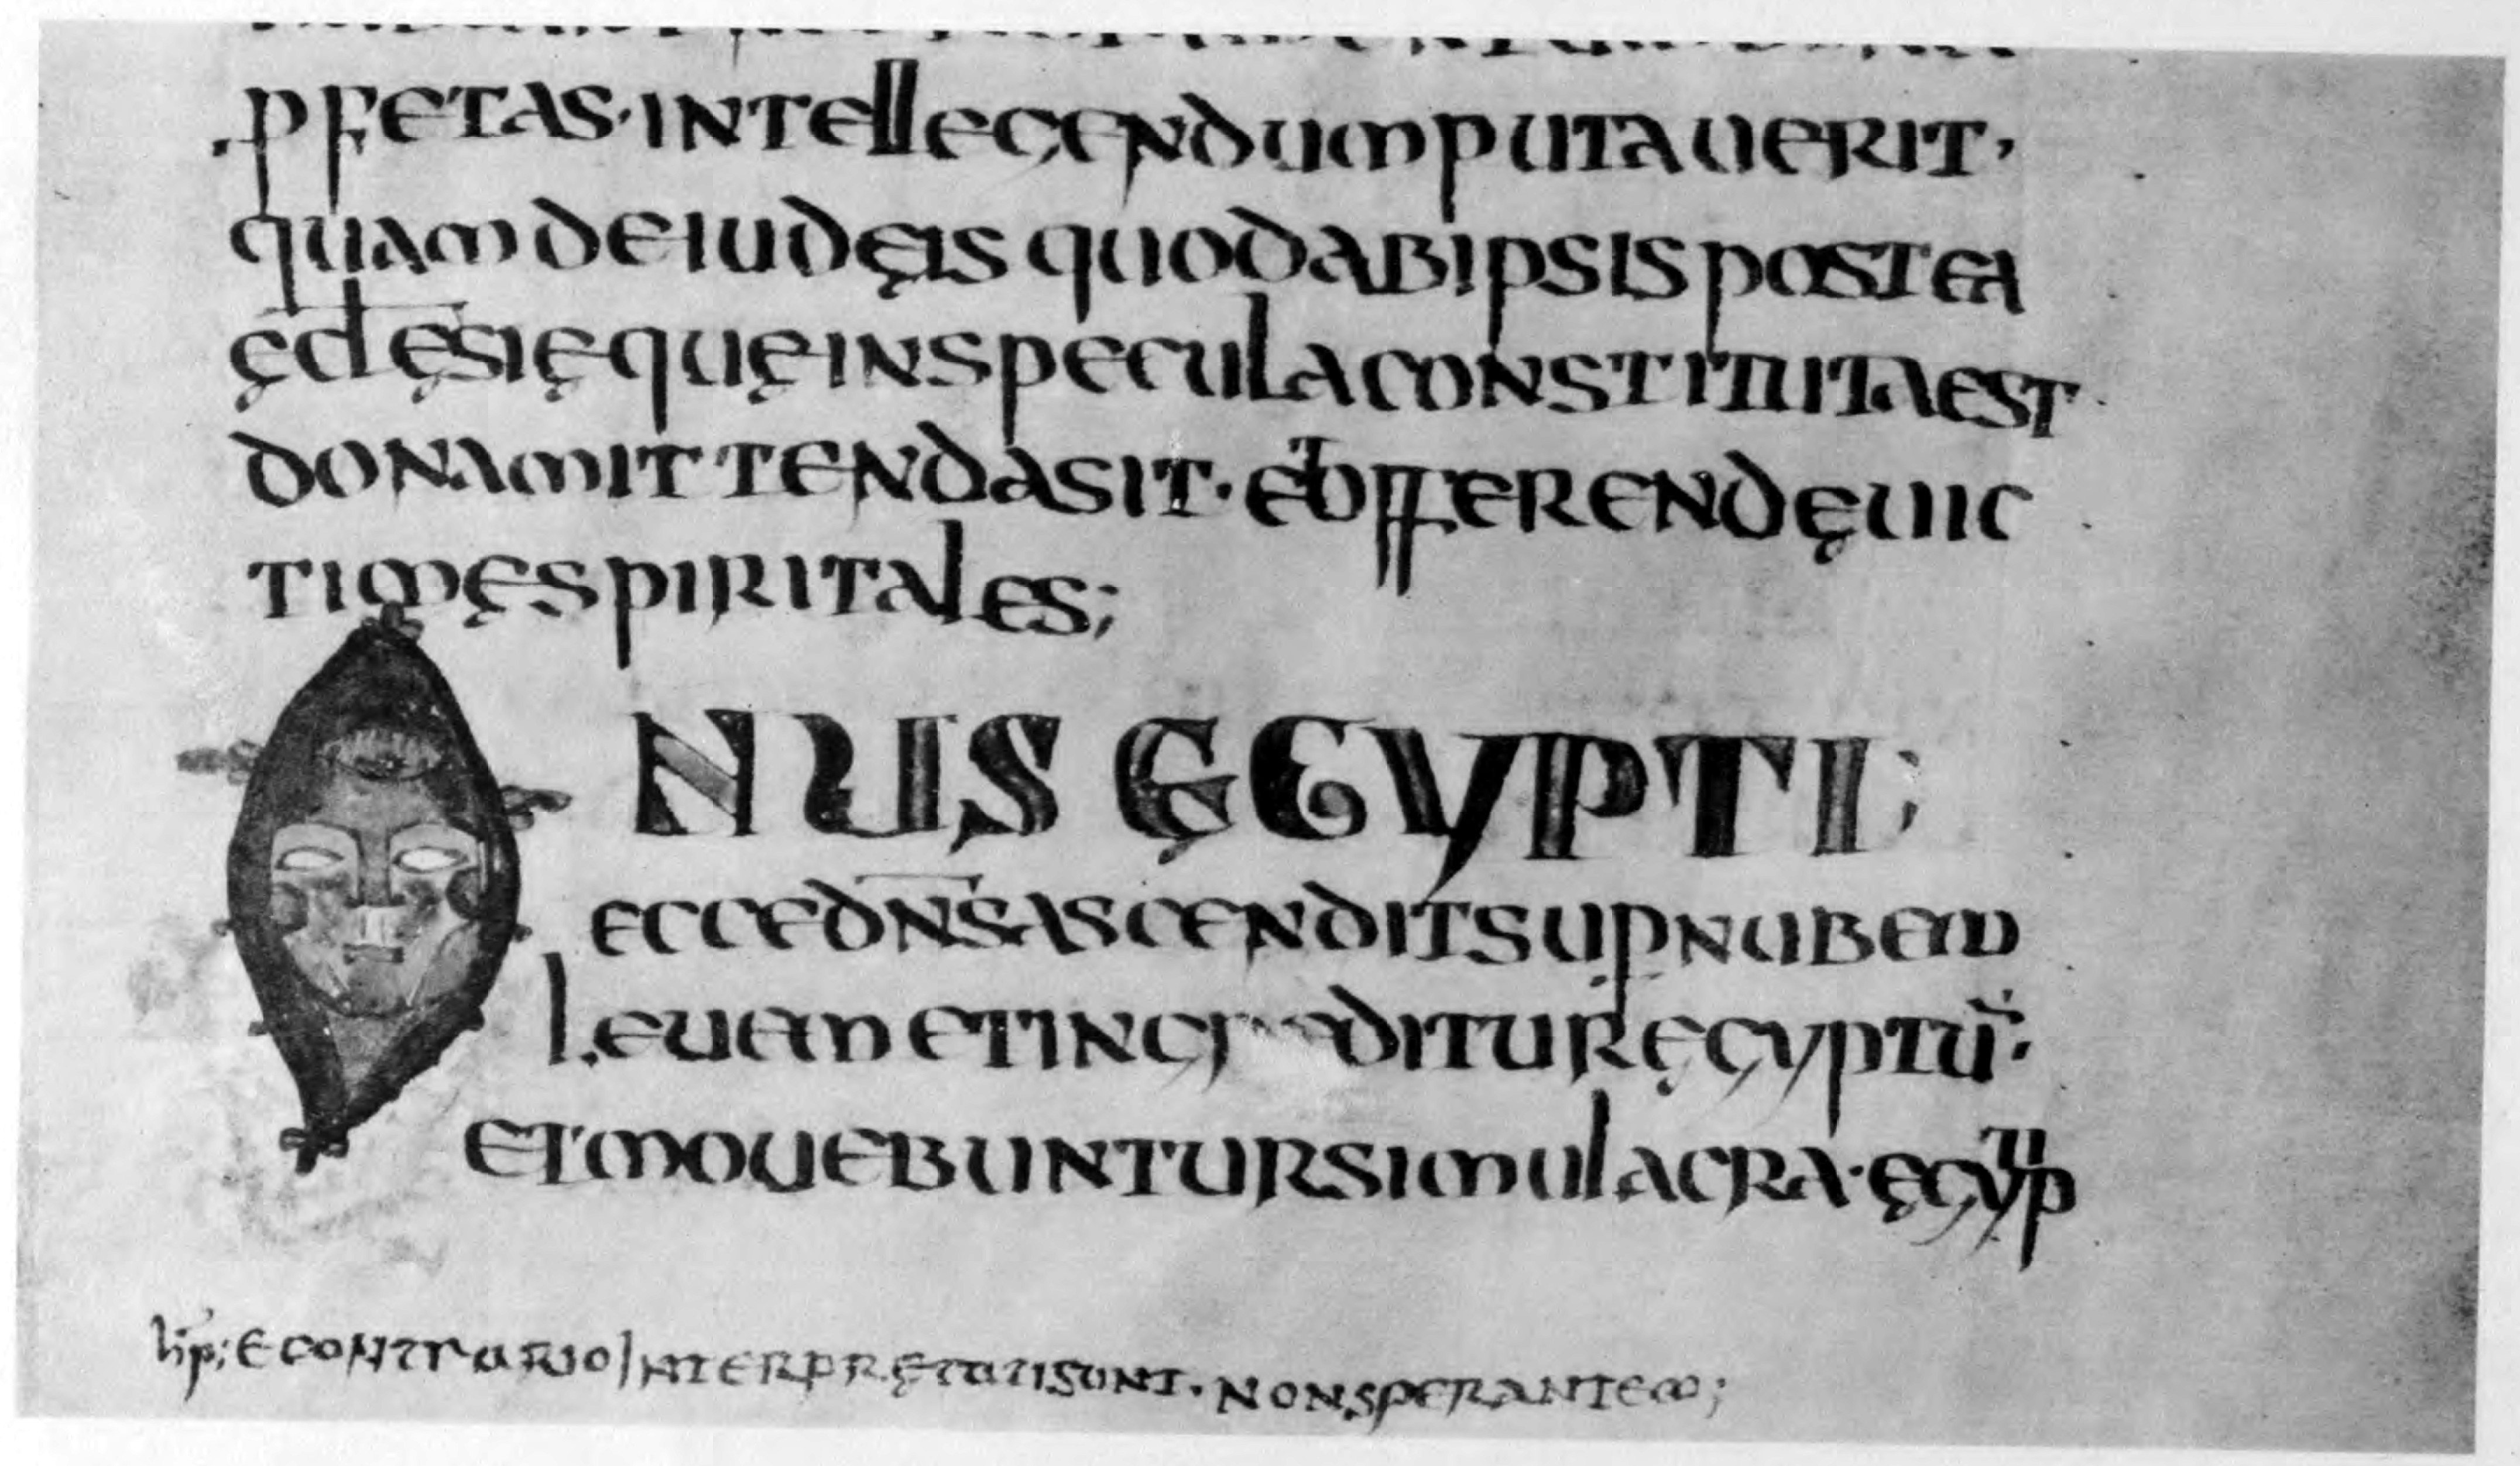 PFETAS·INTELLEGENDUMPUTAUERIT·
QUAMDEIUDĘISQUODABIPSISPOSTEA
ĘCLĘSIĘQUĘINSPECULACONSTITUTAEST
DONAMITTENDASIT·ETOFFERENDĘUIC
TIMĘSPIRITALES;
ONUS ĘGYPTI;
ECCEDN̄SASCENDITSUPNUBEM
LEUEMETINGREDITURĘGYPTŪ·
ETMOUEBUNTURSIMULACRA·ĘGYPTI
hp; ECONTRARIOINTERPRĘTATISUNT·NONSPERANTEM;